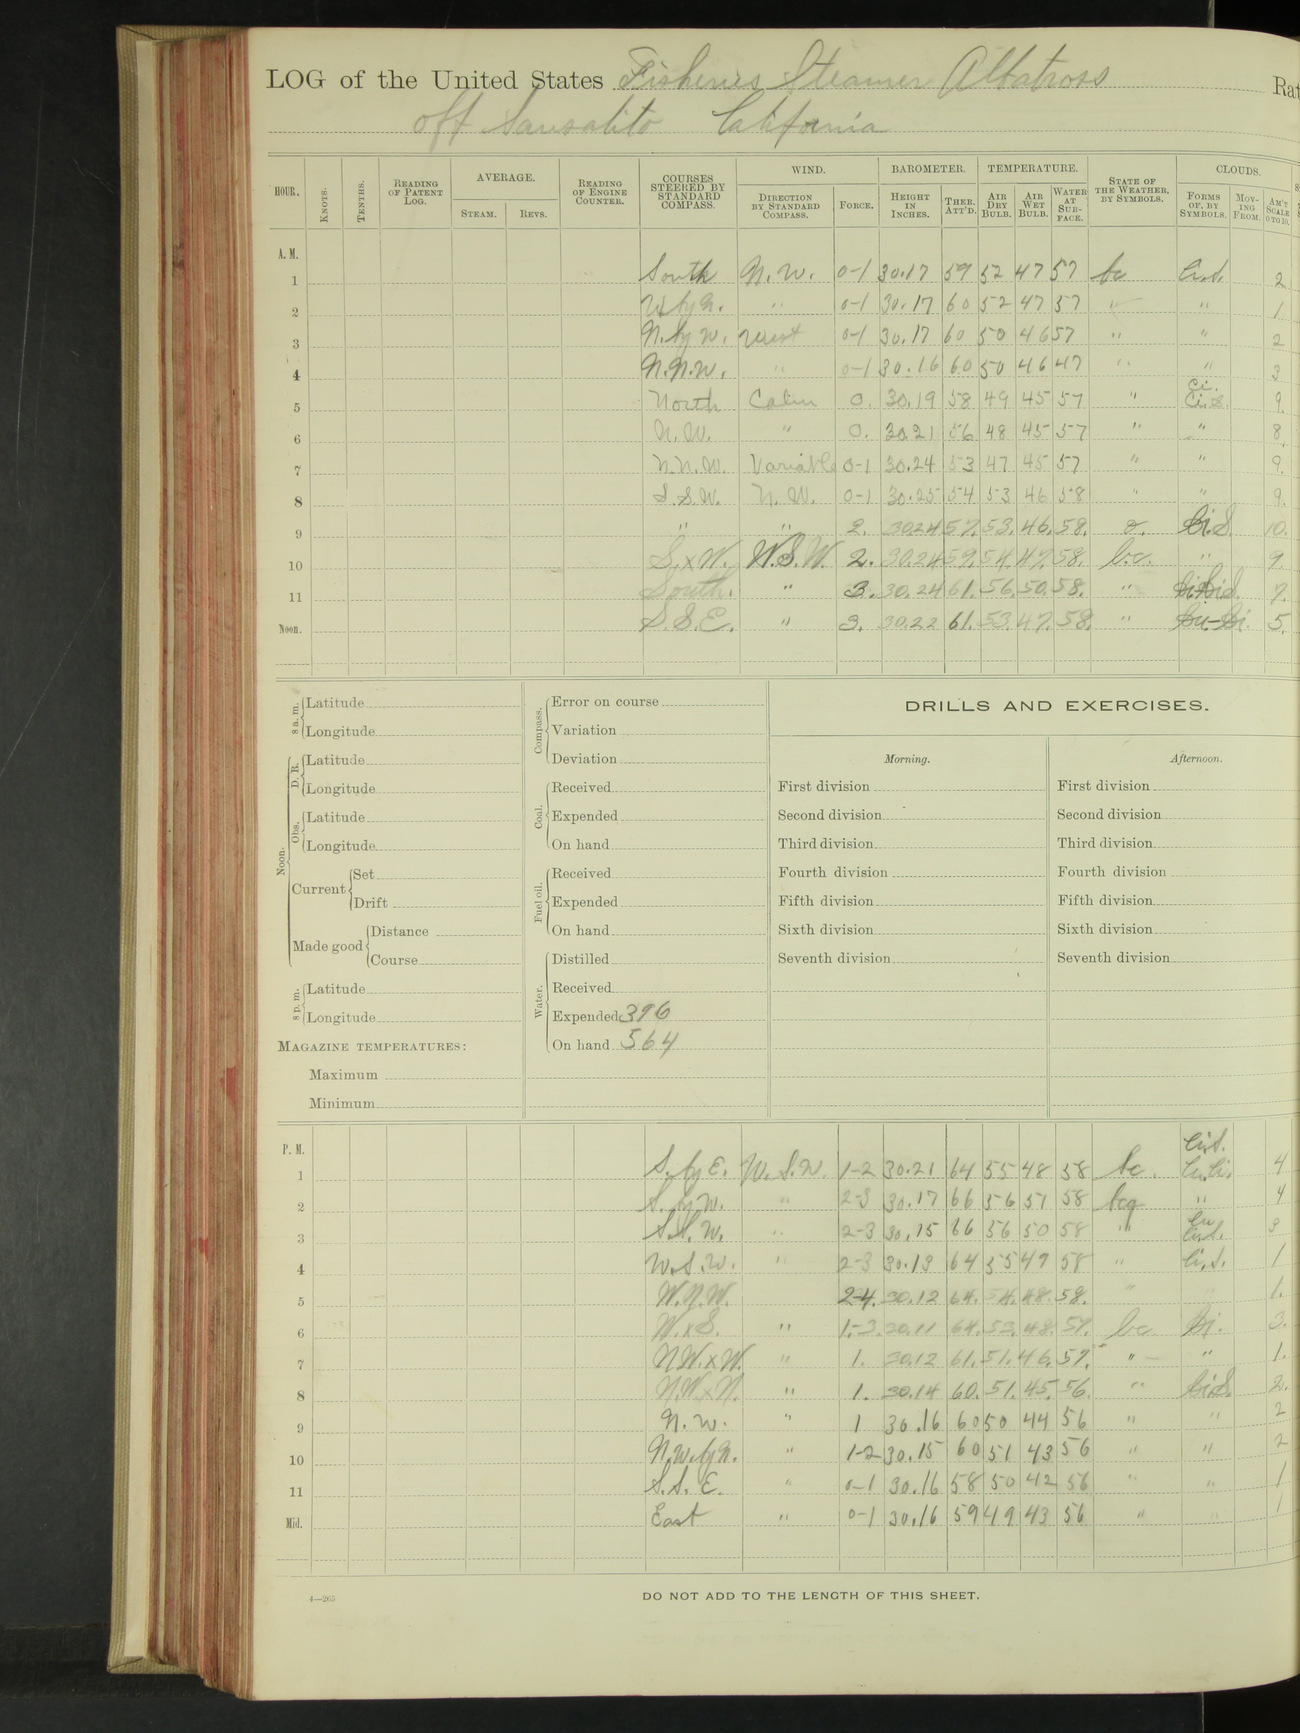 LOG of the United States Fisheries Steamer Albatross Rat
off Sausalito California
HOUR. KNOTS. TENTHS. READING OF PATENT LOG. AVERAGE. STEAM. REVS. READING OF ENGINE COUNTER. COURSES STEERED BY STANDARD COMPASS. WIND. DIRECTION BY STANDARD COMPASS. FORCE. BAROMETER. HEIGHT IN INCHES. THER. ATT'D. TEMPERATURE. AIR DRY BULB. AIR WET BULB. WATER AT SURFACE. STATE OF THE WEATHER, BY SYMBOLS. CLOUDS. FORMS OF, BY SYMBOLS. MOVING FROM. AM'T SCALE 0 TO 10.
A. M.
1 South N. W. 0-1 30.17 59 52 47 57 bc Ci.S. 2
2 W by N. " 0-1 30.17 60 52 47 57 " " 1
3 N. by W. West 0-1 30.17 60 50 46 57 " " 2
4 N.N.W. " 0-1 30.16 60 50 46 47 " " 3
5 North Calm 0. 30.19 58 49 45 57 " Ci. Ci.S. 9.
6 N. W. " 0. 30.21 56 48 45 57 " " 8.
7 N.N.W. Variable 0-1 30.24 53 47 45 57 " " 9.
8 S.S.W. N. W. 0-1 30.25 54 53 46 58 " " 9.
9 " " 2. 30.24 57. 53. 46. 58. o. Ci.S. 10.
10 S.xW. W.S.W. 2. 30.24 59. 54. 47. 58. b.c. " 9.
11 South. " 3. 30.24 61. 56. 50. 58. " 7.
Noon. S.S.E. " 3. 30.22 61. 53. 47. 58. " Cu-Ci. 5.
8 a. m. Latitude
Longitude
Noon. D. R. Latitude
Longitude
Obs. Latitude
Longitude
Current Set
Drift
Made good Distance
Course
8 p. m. Latitude
Longitude
MAGAZINE TEMPERATURES:
Maximum
Minimum
Compass. Error on course
Variation
Deviation
Coal. Received
Expended
On hand
Fuel oil. Received
Expended
On hand
Water. Distilled
Received
Expended 396
On hand 564
DRILLS AND EXERCISES.
Morning. Afternoon.
First division First division
Second division Second division
Third division Third division
Fourth division Fourth division
Fifth division Fifth division
Sixth division Sixth division
Seventh division Seventh division
P. M.
1 S. by E. W.S.W. 1-2 30.21 64 55 48 58 bc. Ci.S. Cu.Ci. 4
2 S. by W. " 2-3 30.17 66 56 51 58 bcq " 4
3 S.S.W. " 2-3 30.15 66 56 50 58 " Cu Ci.S. 3
4 W.S.W. " 2-3 30.13 64 55 49 58 " Ci.S. 1
5 W.N.W. 2-4. 30.12 64. 54. 48. 58. " " 1.
6 W.xS. " 1-3. 30.11 64. 53. 48. 57. bc Ci. 3.
7 NW.xW. " 1. 30.12 61. 51. 46. 57. " " 1.
8 N.W.xN. " 1. 30.14 60. 51. 45. 56. " Ci.S. 2.
9 N.W. " 1 30.16 60 50 44 56 " " 2
10 N.W. by N. " 1-2 30.15 60 51 43 56 " " 2
11 S.S.E. " 0-1 30.16 58 50 42 56 " " 1
Mid. East " 0-1 30.16 59 49 43 56 " " 1
4—265
DO NOT ADD TO THE LENGTH OF THIS SHEET.